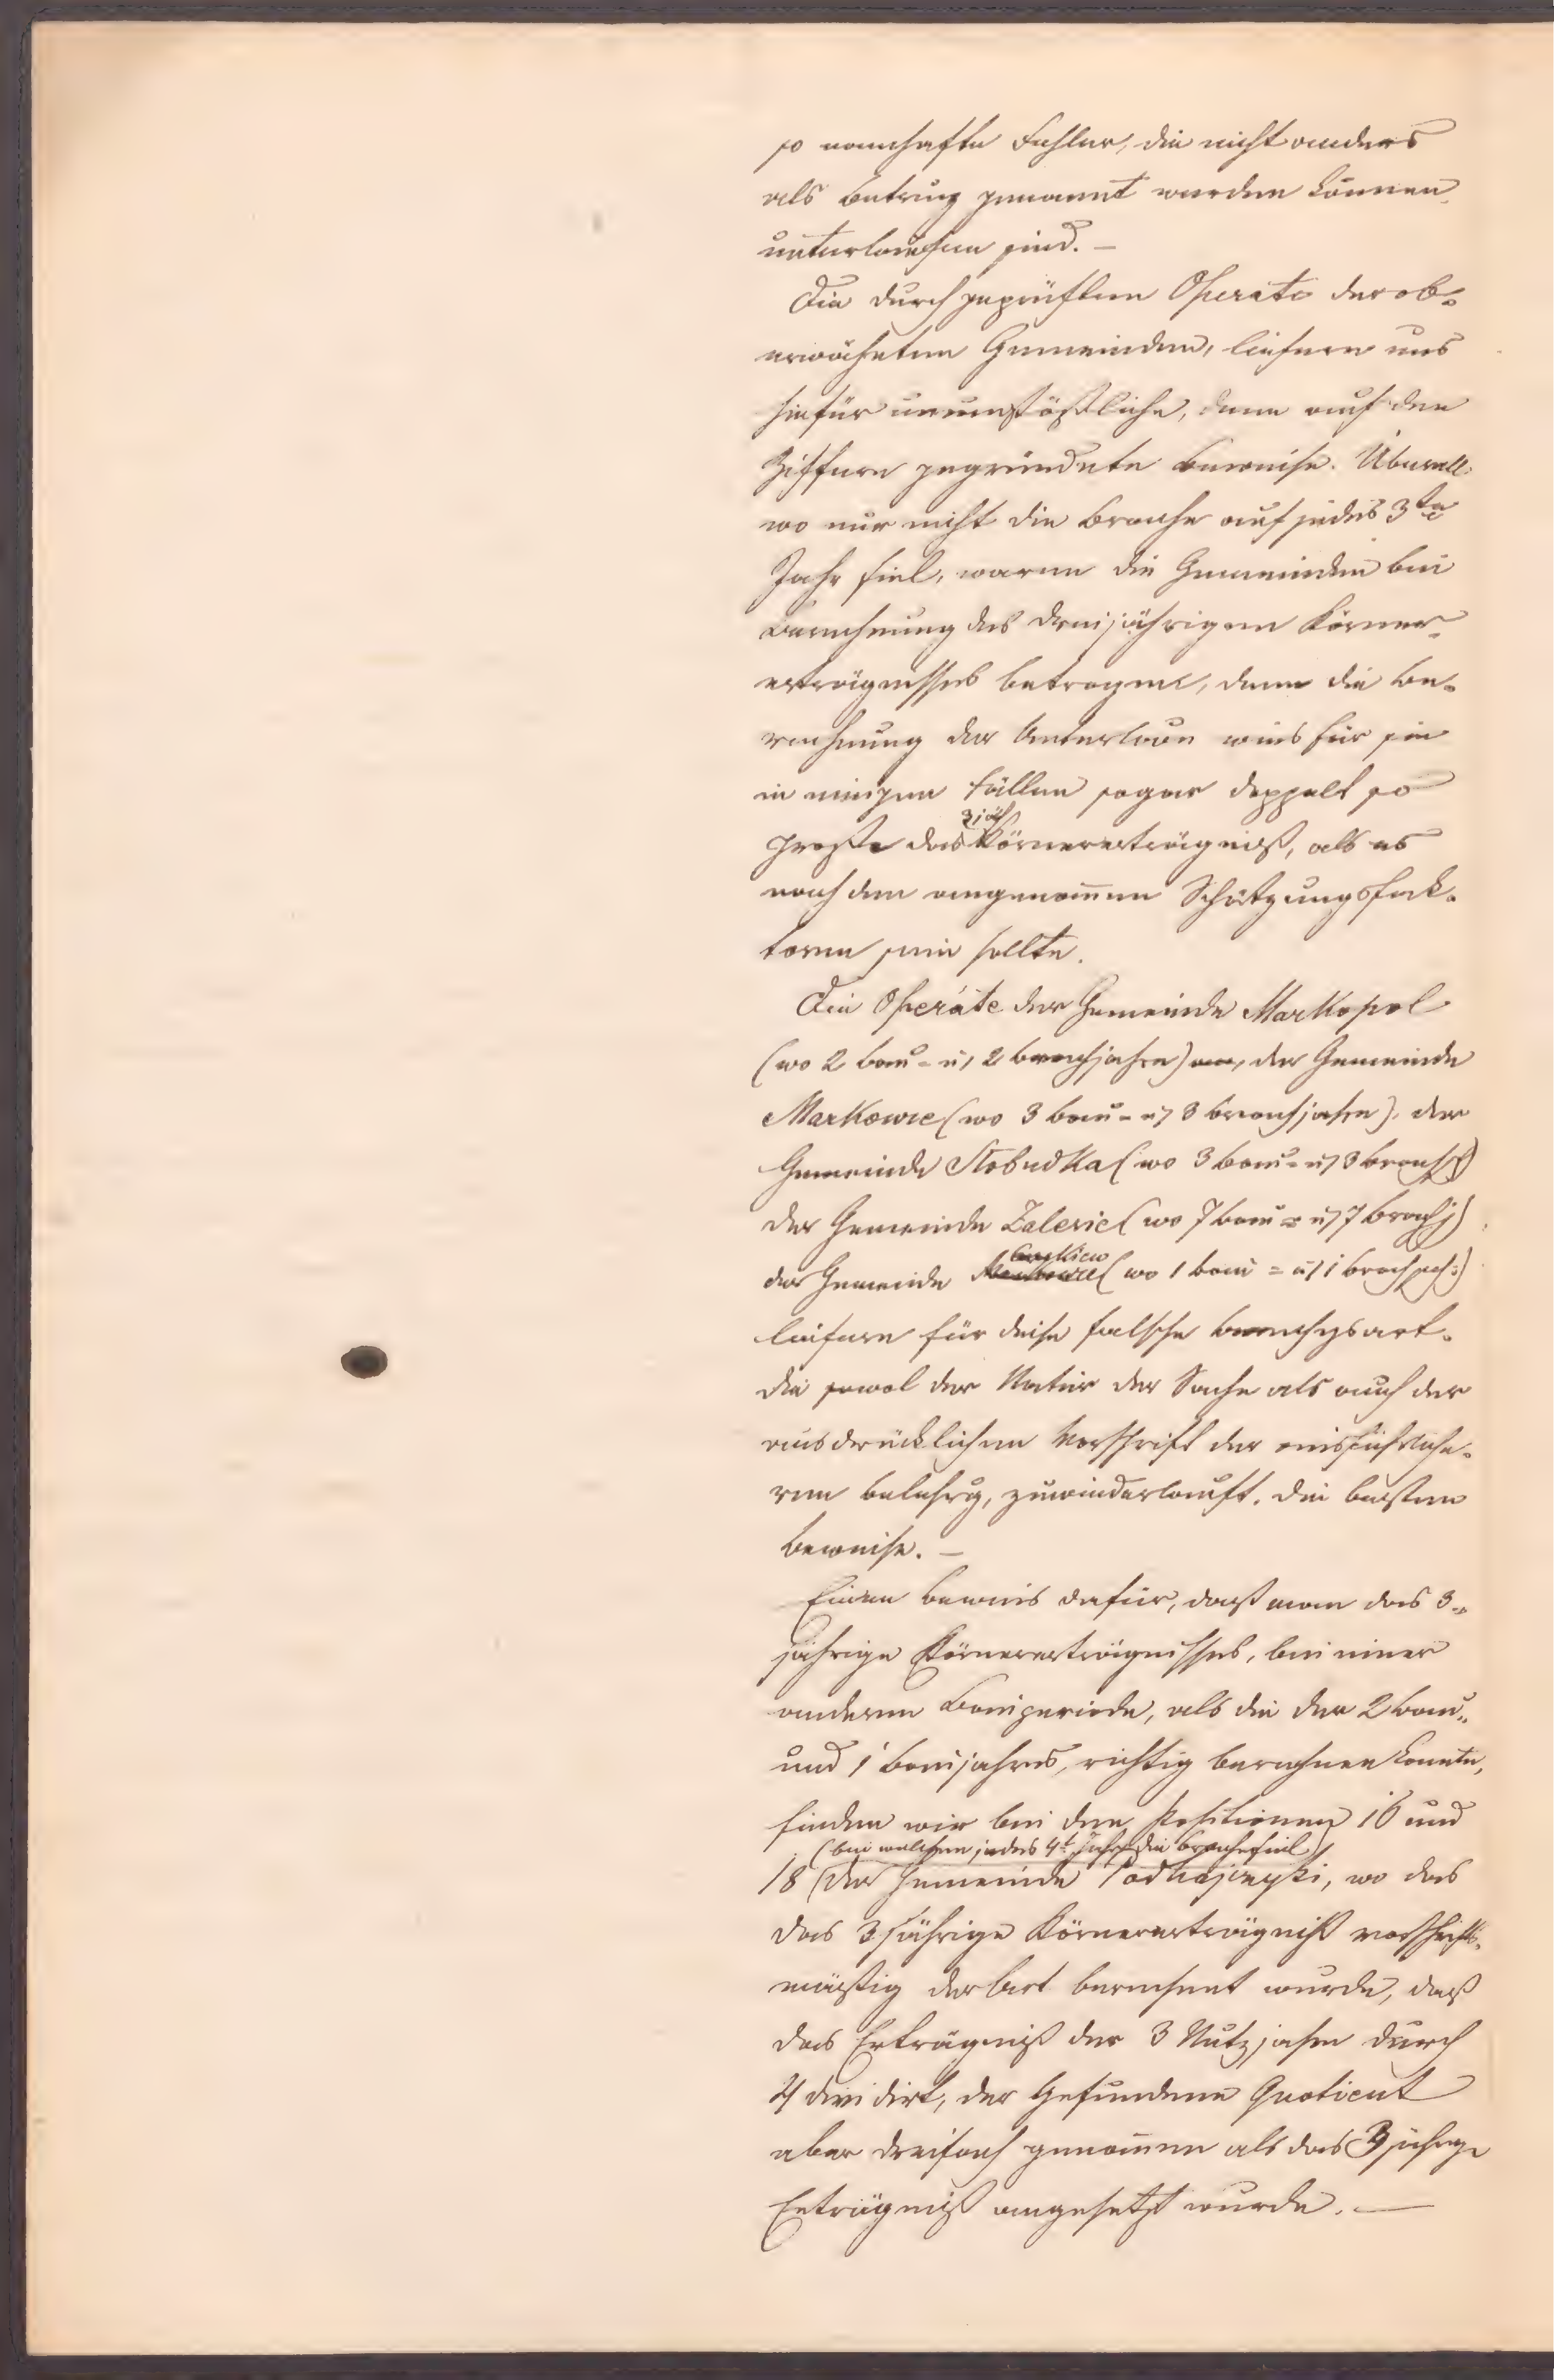 so namhafte Fehler, die nicht anders
als Betrug genannt werden können,
unterlaufen sind. —
Die durchgeprüften Operate der ob-
erwähnten Gemeinden, liefern uns
hiefür unumstößliche, denn auf den
Ziffern gegründete Beweise. Überall
wo nur nicht die Brache auf jedes 3te
Jahr fiel, waren die Gemeinden bei
Berechnung des dreijährigen Körner-
erträgnisses betrogen, denn die Be-
rechnung der wies für sie
in einigen Fällen sogar doppelt so
große das 3jäh Körnererträgniß, als es
nach den angenom̄enen Schätzungsfak-
toren sein sollte.
Die Operáte der Gemeinde Markopol
(wo 2 Bau- u, 2 Brachjahre) der Gemeinde
Markowce (wo 3 Bau- u, 3 Brachjahre), der
Gemeinde Slobudka (wo 3 Bau- u, 3 Brachj)
der Gemeinde Zalesie (wo 7 Bau- u, 7 Brachj)
der Gemeinde (wo 1 Bau- u, 1 Brachjah:)
liefern für diese falsche Berechgsart,
die sowol der Natur der Sache als auch der
ausdrücklichen Vorschrift der ausführliche-
ren Belehrg, zuwiederlauft, die besten
Beweise. —
Einen Beweis dafür, daß man das 3-
jährige Körnererträgnisses, bei einer
anderen Bauperiode, als die der 2 Bau-
und 1 Baujahres, richtig berechnen konnte,
finden wir bei den Positionen 16 und
(bei welchen jedes 4t Jahr die Brache fiel)
18 (der Gemeinde Podhajczyki, wo das
das 3jährige Körnererträgniß vorschrifts-
mäßig der Art berechnet wurde, daß
das Erträgniß der 3 Nutzjahre durch
4 dividirt, der Gefundene Quotient
aber dreifach genom̄en als das 3jährge
Erträgniß angesetzt wurde. —